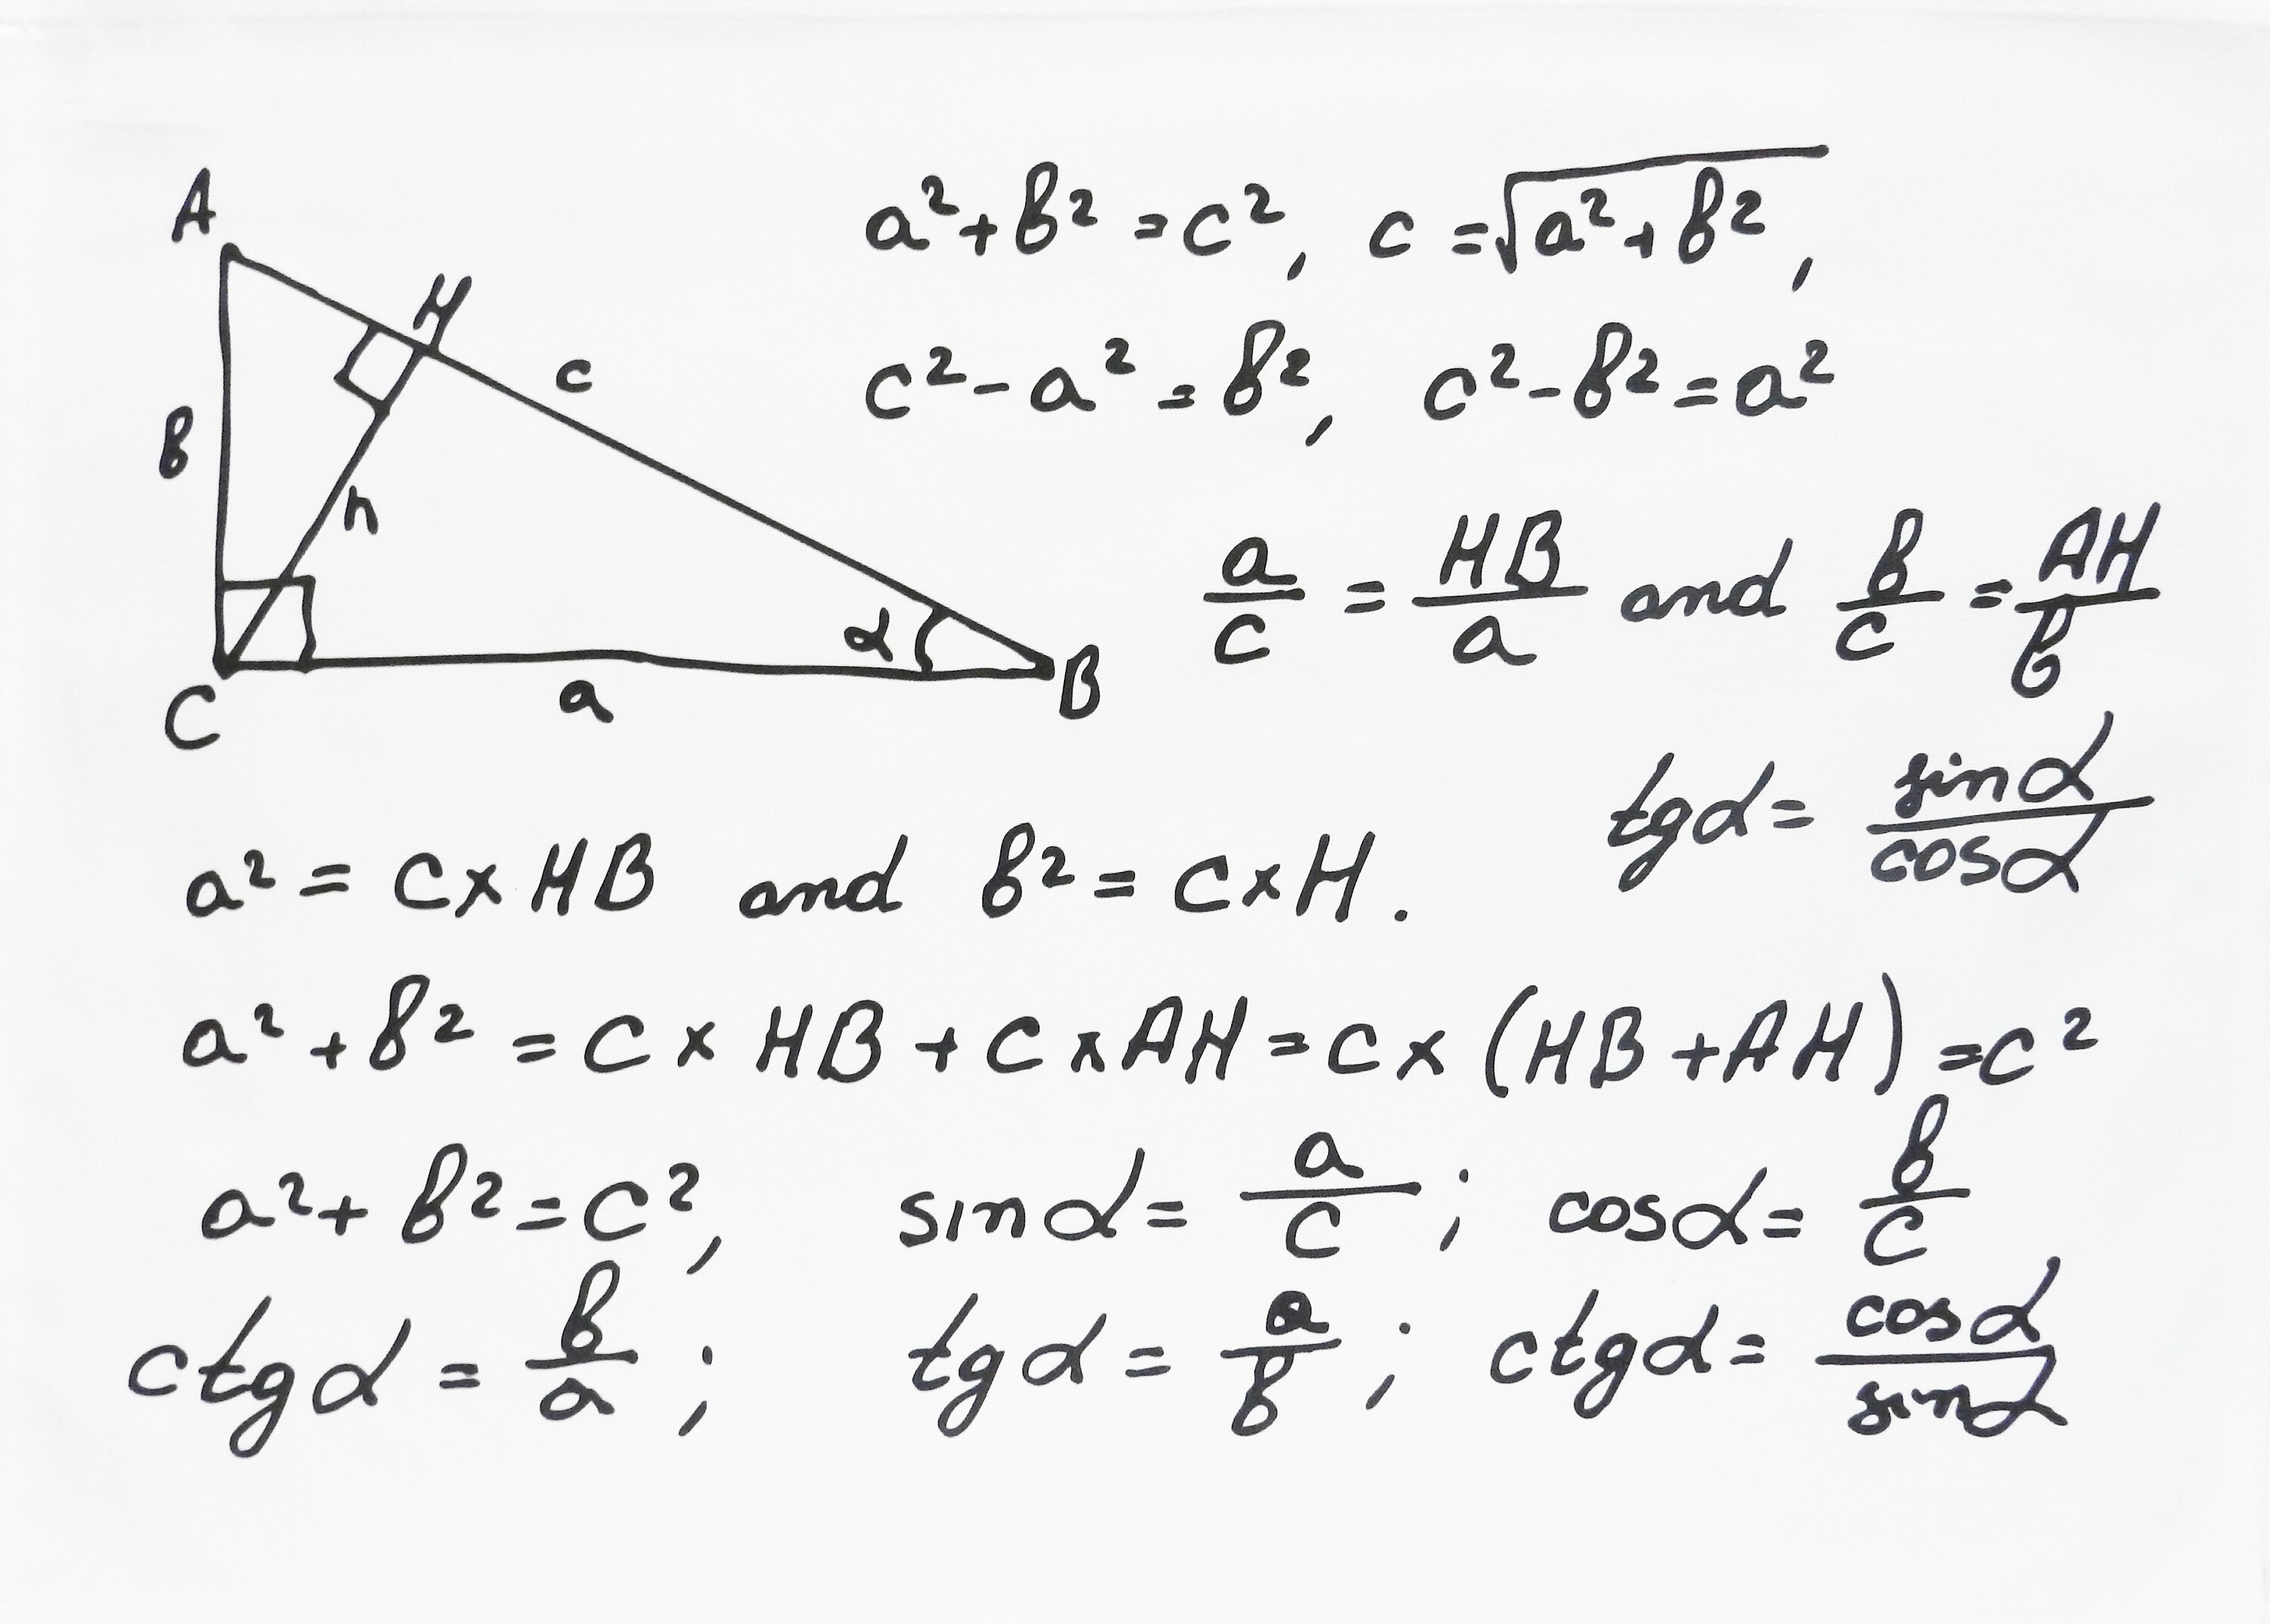 A
H
c
в
h
α
C
a
B
a² + в² = c², c = √(a² + в²),
c² - a² = в², c² - в² = a²
a/c = HB/a and в/c = AH/в
tgα = sinα/cosα
a² = c × HB and в² = c × H.
a² + в² = c × HB + c × AH = c × (HB + AH) = c²
a² + в² = c², sinα = a/c ; cosα = в/c
ctgα = в/a ; tgα = a/в ; ctgα = cosα/sinα